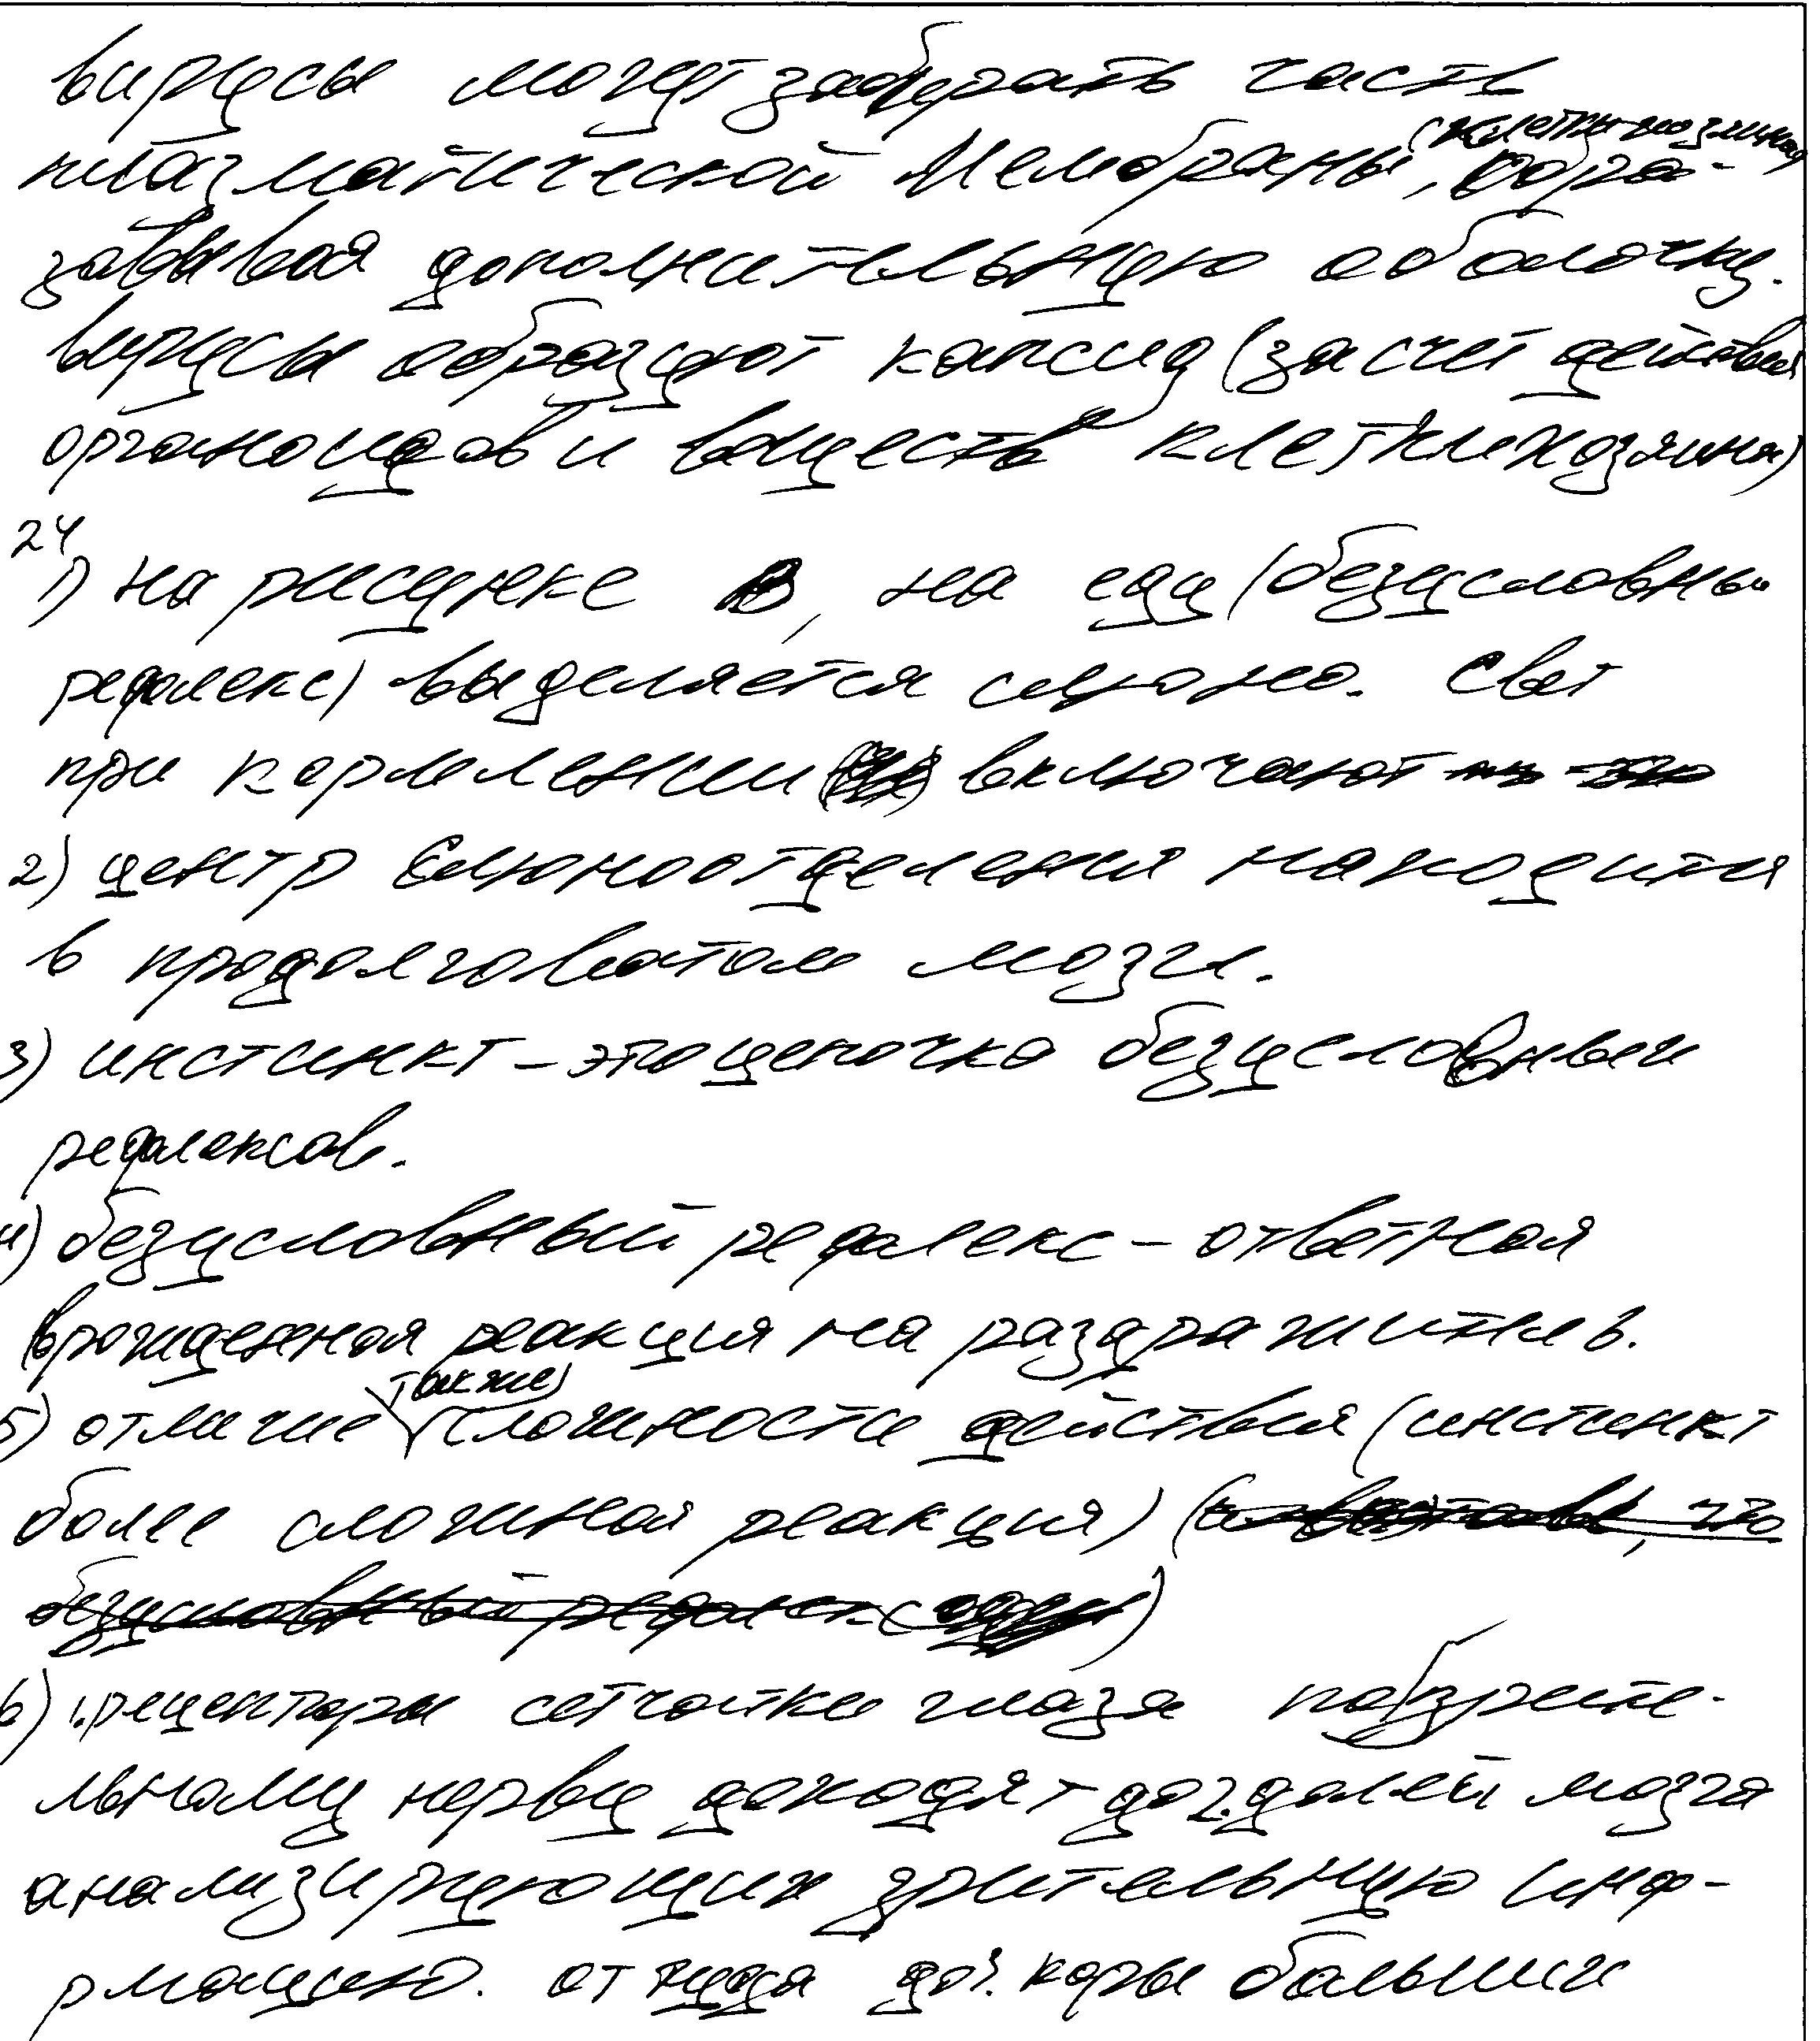 вирусы могут забирать часть
(клетки хозяина)
плазматической мембраны, обра-
зовывая дополнительную оболочку.
вирусы образуют капсид (за счет действия
органоидов и веществ клетки хозяина)
24
1) на рисунке В, на еду (безусловны
рефлекс) выделяется слюна. Свет
при кормлении включают
2) центр слюноотделения находится
в продолговатом мозге.
3) инстинкт - это цепочка безусловных
рефлексов.
4) безусловный рефлекс - ответная
врожденная реакция на раздражитель.
также
5) отличие сложности действия (инстинкт
более сложная реакция)
безусловный рефлекс
6) 1.рецепторы сетчатки глаза по зрите-
льному нерву доходят до 2.долей мозга
анализирующих зрительную инфо-
рмацию. от туда до 3. коры больших